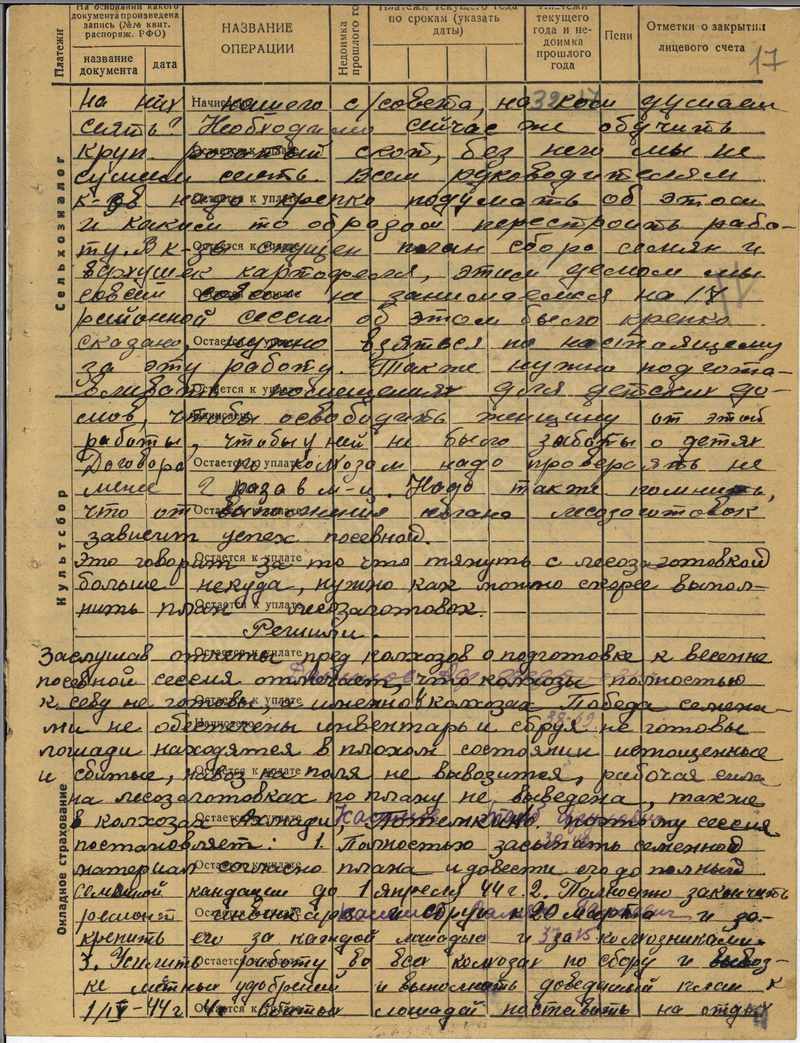 На основании какого документа произведена запись (№№ квит. распоряж. РФО)
название документа
дата
НАЗВАНИЕ ОПЕРАЦИИ
Недоимка прошлого го
Платежи текущего года по срокам (указать даты)
Платежи текущего года и недоимка прошлого года
Пени
Отметки о закрытии лицевого счета
17
Платежи
Сельхозналог
Культсбор
Окладное страхование
на них нашего с/совета, на ком думаем
сеять? Необходимо сейчас же обучить
круп. рогатый скот, без него мы не
сумеем сеять. Всем руководителям
к-зов надо крепко подумать об этом
и каким то образом перестроить рабо-
ту. В к-зы спущен план сбора семян и
верхушек картофеля, этим делом мы
совсем не занимаемся на 17
районной сессии об этом было крепко
сказано, нужно взяться по настоящему
за эту работу. Также нужно подгота-
вливать помещения для детских до-
мов, чтобы освободить женщину от этой
работы, чтобы у ней не было заботы о детях
Договора по колхозам надо проверять не
мене 2 раза в м-ц. Надо также помнить,
что от выполнения плана лесозаготовок
зависит успех посевной.
Это говорит за то что тянуть с лесозаготовкой
больше некуда, нужно как можно скорее выпол-
нить план лесозаготовок.
Решили.
Заслушав отчеты пред колхозов о подготовке к весенне
посевной сессия отмечает, что колхозы полностью
к севу не готовы, а именно в колхозах Победа семена-
ми не обеспечены инвентарь и сбруя не готовы
лошади находятся в плохом состоянии истощенные
и сбитые, навоз на поля не вывозится, рабочая сила
на лесозаготовках по плану не выведена, также
в колхозах Потемкино. поэтому сессия
постановляет: 1. Полностью засыпать семенной
материал согласно плана и довести его до полный
семенной кандации до 1 апреля 44 г. 2. Полностью закончить
ремонт инвентаря и сбруи к 20 марта и за-
крепить его за каждой лошадью и за колхозниками.
3. Усилить работу во всех колхозах по сбору и вывоз-
ке местных удобрений и выполнить доведенный план к
1/IV-44 г 4. сбитых лошадей поставить на отдых